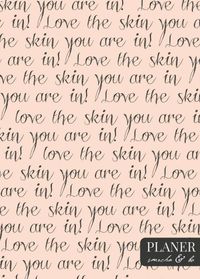 the skin you are in! Love the
skin you are in! Love the skin
you are in! Love the skin you
are in! Love the skin you are
in! Love the skin you are in!
love the skin you are in! Love
the skin you are in! Love the
skin you are in! Love the skin
you are in! Love the skin you
are in! Love the skin you are
in! love the skin you are in!
Love the skin you are in! Love
the skin you are in! Love the
skin you are in! Love the skin
you are in! Love the skin you
are in! Love the skin
in! Love the skin you
PLANER